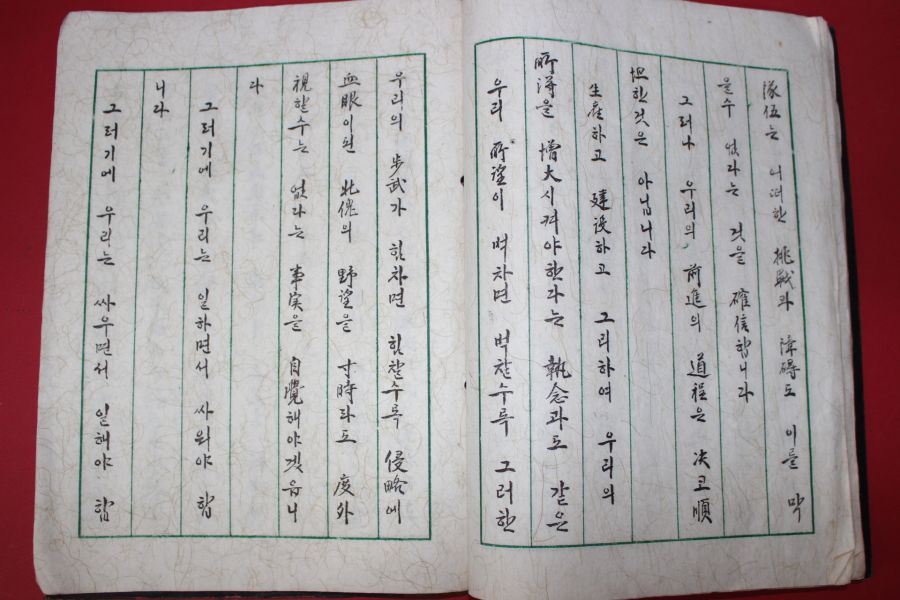 隊伍는 어떠한 挑戰과 障碍도 이를 막
을수 없다는 것을 確信합니다
그러나 우리의 前進의 道程은 决코 順
坦한것은 아닙니다
生産하고 建設하고 그리하여 우리의
所得을 增大시켜야한다는 執念과도 같은
우리 所望이 벅차면 벅찰수록 그러한
우리의 步武가 힘차면 힘찰수록 侵略에
血眼이된 北傀의 野望을 寸時라도 度外
視할수는 없다는 事実을 自覺해야겠읍니
다
그러기에 우리는 일하면서 싸워야 합
니다
그러기에 우리는 싸우면서 일해야 합